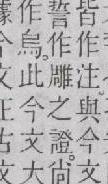 皆作注。與今文
誓作雕之證。尙
作烏。此今文大
據今文
古文